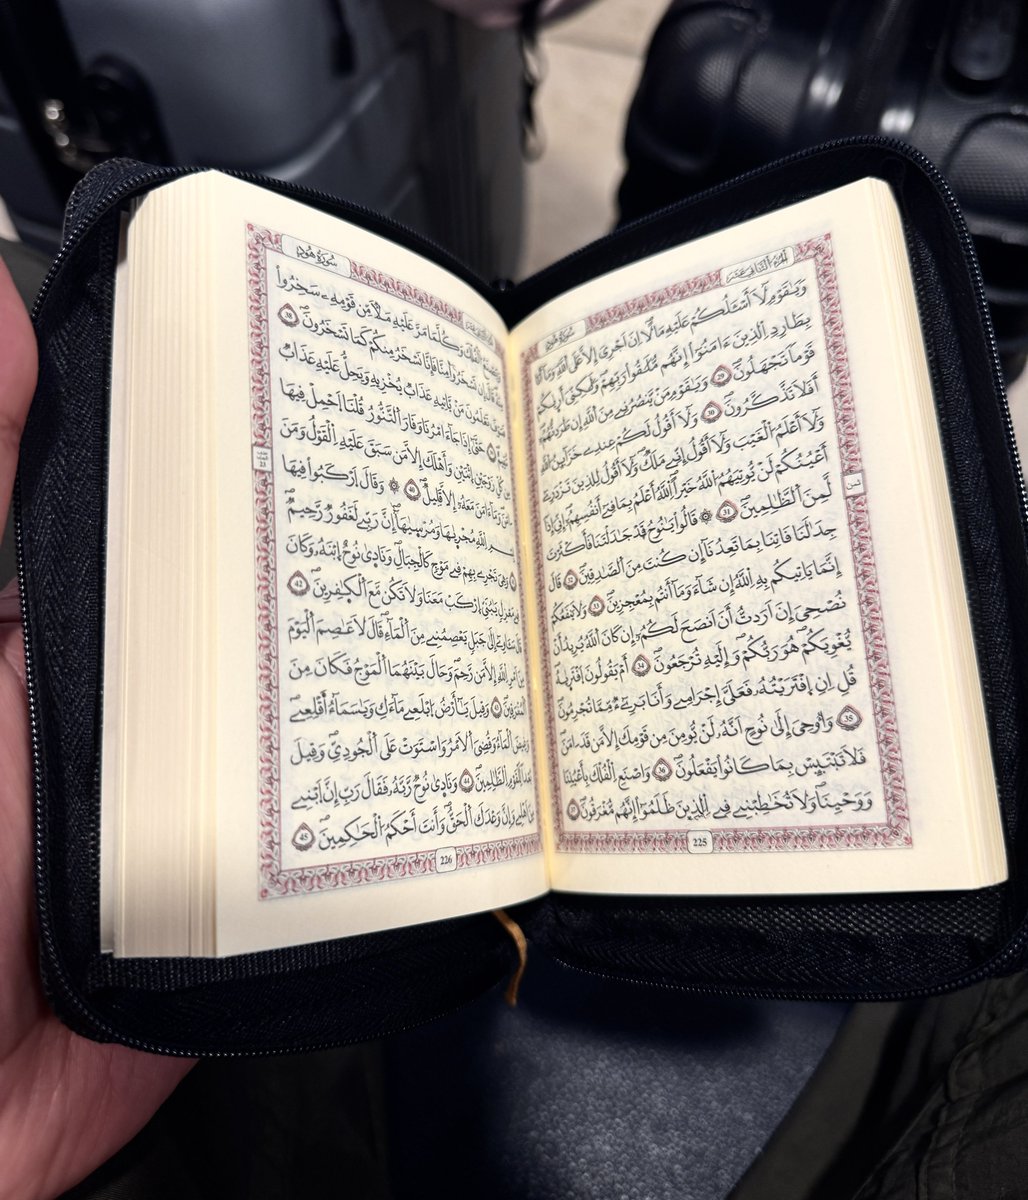 الجزء الثاني عشر
سورة هود
وَيَٰقَوْمِ لَآ أَسْـَٔلُكُمْ عَلَيْهِ مَالًا اِنَ اَجْرِيَ إِلَّا عَلَى اَللَّهِ وَمَآ أَنَا
بِطَارِدِ اِلذِينَ ءَامَنُوٓاْ إِنَّهُم مُّلَٰقُواْ رَبِّهِمْ وَلَٰكِنِّيَ أَرٜىٰكُمْ
قَوْماٗ تَجْهَلُونَۖ 29 وَيَٰقَوْمِ مَنْ يَّنصُرُنِے مِنَ اَللَّهِ إِن طَرَدتُّهُمُۥٓ
أَفَلَا تَذَّكَّرُونَۖ 30 وَلَآ أَقُولُ لَكُمْ عِندِے خَزَآئِنُ اُللَّهِ
وَلَآ أَعْلَمُ اُلْغَيْبَ وَلَآ أَقُولُ إِنِّے مَلَكٞۖ وَلَآ أَقُولُ لِلذِينَ تَزْدَرِےٓ
أَعْيُنُكُمْ لَنْ يُّوتِيَهُمُ اُللَّهُ خَيْراًۖ اِللَّهُ أَعْلَمُ بِمَا فِےٓ أَنفُسِهِمُۥٓ إِنِّيَ إِذاٗ
لَّمِنَ اَلظَّٰلِمِينَۖ 31 ۞ قَالُواْ يَٰنُوحُ قَدْ جَٰدَلْتَنَا فَأَكْثَرْتَ
جِدَٰلَنَا فَاتِنَا بِمَا تَعِدُنَآ إِن كُنتَ مِنَ اَلصَّٰدِقِينَۖ 32 قَالَ
إِنَّمَا يَاتِيكُم بِهِ اِللَّهُ إِن شَآءَ وَمَآ أَنتُم بِمُعْجِزِينَۖ 33 وَلَا يَنفَعُكُمْ
نُصْحِيَ إِنَ اَرَدتُّ أَنَ اَنصَحَ لَكُمُۥٓ إِن كَانَ اَللَّهُ يُرِيدُ أَنْ
يُّغْوِيَكُمْۖ هُوَ رَبُّكُمْ وَإِلَيْهِ تُرْجَعُونَۖ 34 أَمْ يَقُولُونَ اَفْتَرٜىٰهُ
قُلِ اِنِ اِفْتَرَيْتُهُۥ فَعَلَيَّ إِجْرَامِے وَأَنَا بَرِےٓءٞ مِّمَّا تُجْرِمُونَۖ
35 وَأُوحِيَ إِلَىٰ نُوحٍ اَنَّهُۥ لَنْ يُّومِنَ مِن قَوْمِكَ إِلَّا مَن قَدَ اٰمَنَ
فَلَا تَبْتَئِسْ بِمَا كَانُواْ يَفْعَلُونَۖ 36 وَاصْنَعِ اِلْفُلْكَ بِأَعْيُنِنَا
وَوَحْيِنَاۖ وَلَا تُخَٰطِبْنِے فِے اِلذِينَ ظَلَمُوٓاْ إِنَّهُم مُّغْرَقُونَۖ 37
ثمن
225
سورة هود
وَيَصْنَعُ اُلْفُلْكَ وَكُلَّمَا مَرَّ عَلَيْهِ مَلَأٞ مِّن قَوْمِهِۦ سَخِرُواْ
مِنْهُ قَالَ إِن تَسْخَرُواْ مِنَّا فَإِنَّا نَسْخَرُ مِنكُمْ كَمَا تَسْخَرُونَۖ 38
فَسَوْفَ تَعْلَمُونَ مَنْ يَّاتِيهِ عَذَابٞ يُخْزِيهِ وَيَحِلُّ عَلَيْهِ عَذَابٞ
مُّقِيمٌۖ 39 حَتَّىٰٓ إِذَا جَآءَ امْرُنَا وَفَارَ اَلتَّنُّورُ قُلْنَا اَحْمِلْ فِيهَا
مِن كُلِّ زَوْجَيْنِ اِثْنَيْنِ وَأَهْلَكَ إِلَّا مَن سَبَقَ عَلَيْهِ اِلْقَوْلُ وَمَنَ
اٰمَنَۖ وَمَآ ءَامَنَ مَعَهُۥٓ إِلَّا قَلِيلٞۖ 40 ۞ وَقَالَ اَرْكَبُواْ فِيهَا
بِسْمِ اِللَّهِ مُجْرٜىٰهَا وَمُرْسَىٰهَآ إِنَّ رَبِّے لَغَفُورٞ رَّحِيمٞۖ
41 وَهِيَ تَجْرِے بِهِمْ فِے مَوْجٖ كَالْجِبَالِۖ وَنَادٜىٰ نُوحٌ اِبْنَهُۥ وَكَانَ
فِے مَعْزِلٖ يَٰبُنَيِّ اِرْكَب مَّعَنَا وَلَا تَكُن مَّعَ اَلْكٰفِرِينَۖ 42
قَالَ سَـَٔاوِےٓ إِلَىٰ جَبَلٖ يَعْصِمُنِے مِنَ اَلْمَآءِۖ قَالَ لَا عَاصِمَ اَلْيَوْمَ
مِنَ اَمْرِ اِللَّهِ إِلَّا مَن رَّحِمَۖ وَحَالَ بَيْنَهُمَا اَلْمَوْجُ فَكَانَ مِنَ
اَلْمُغْرَقِينَۖ 43 وَقِيلَ يَٰٓأَرْضُ اُبْلَعِے مَآءَكِ وَيَٰسَمَآءُ أَقْلِعِےۖ
وَغِيضَ اَلْمَآءُ وَقُضِيَ اَلَامْرُ وَاسْتَوَتْ عَلَى اَلْجُودِيِّۖ وَقِيلَ
بُعْداٗ لِّلْقَوْمِ اِلظَّٰلِمِينَۖ 44 وَنَادٜىٰ نُوحٞ رَّبَّهُۥ فَقَالَ رَبِّ إِنَّ اَبْنِے
مِنَ اَهْلِے وَإِنَّ وَعْدَكَ اَلْحَقُّ وَأَنتَ أَحْكَمُ اُلْحَٰكِمِينَۖ 45
23
226